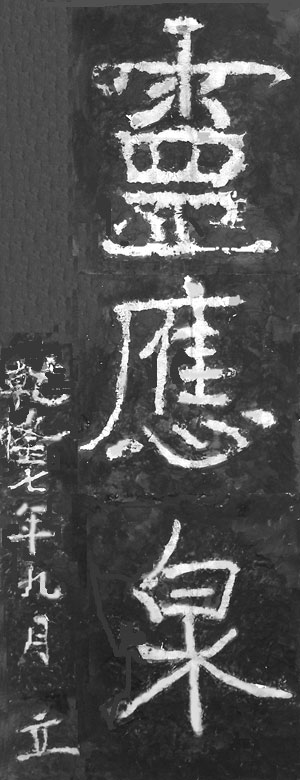 靈應泉
乾隆七年九月 立